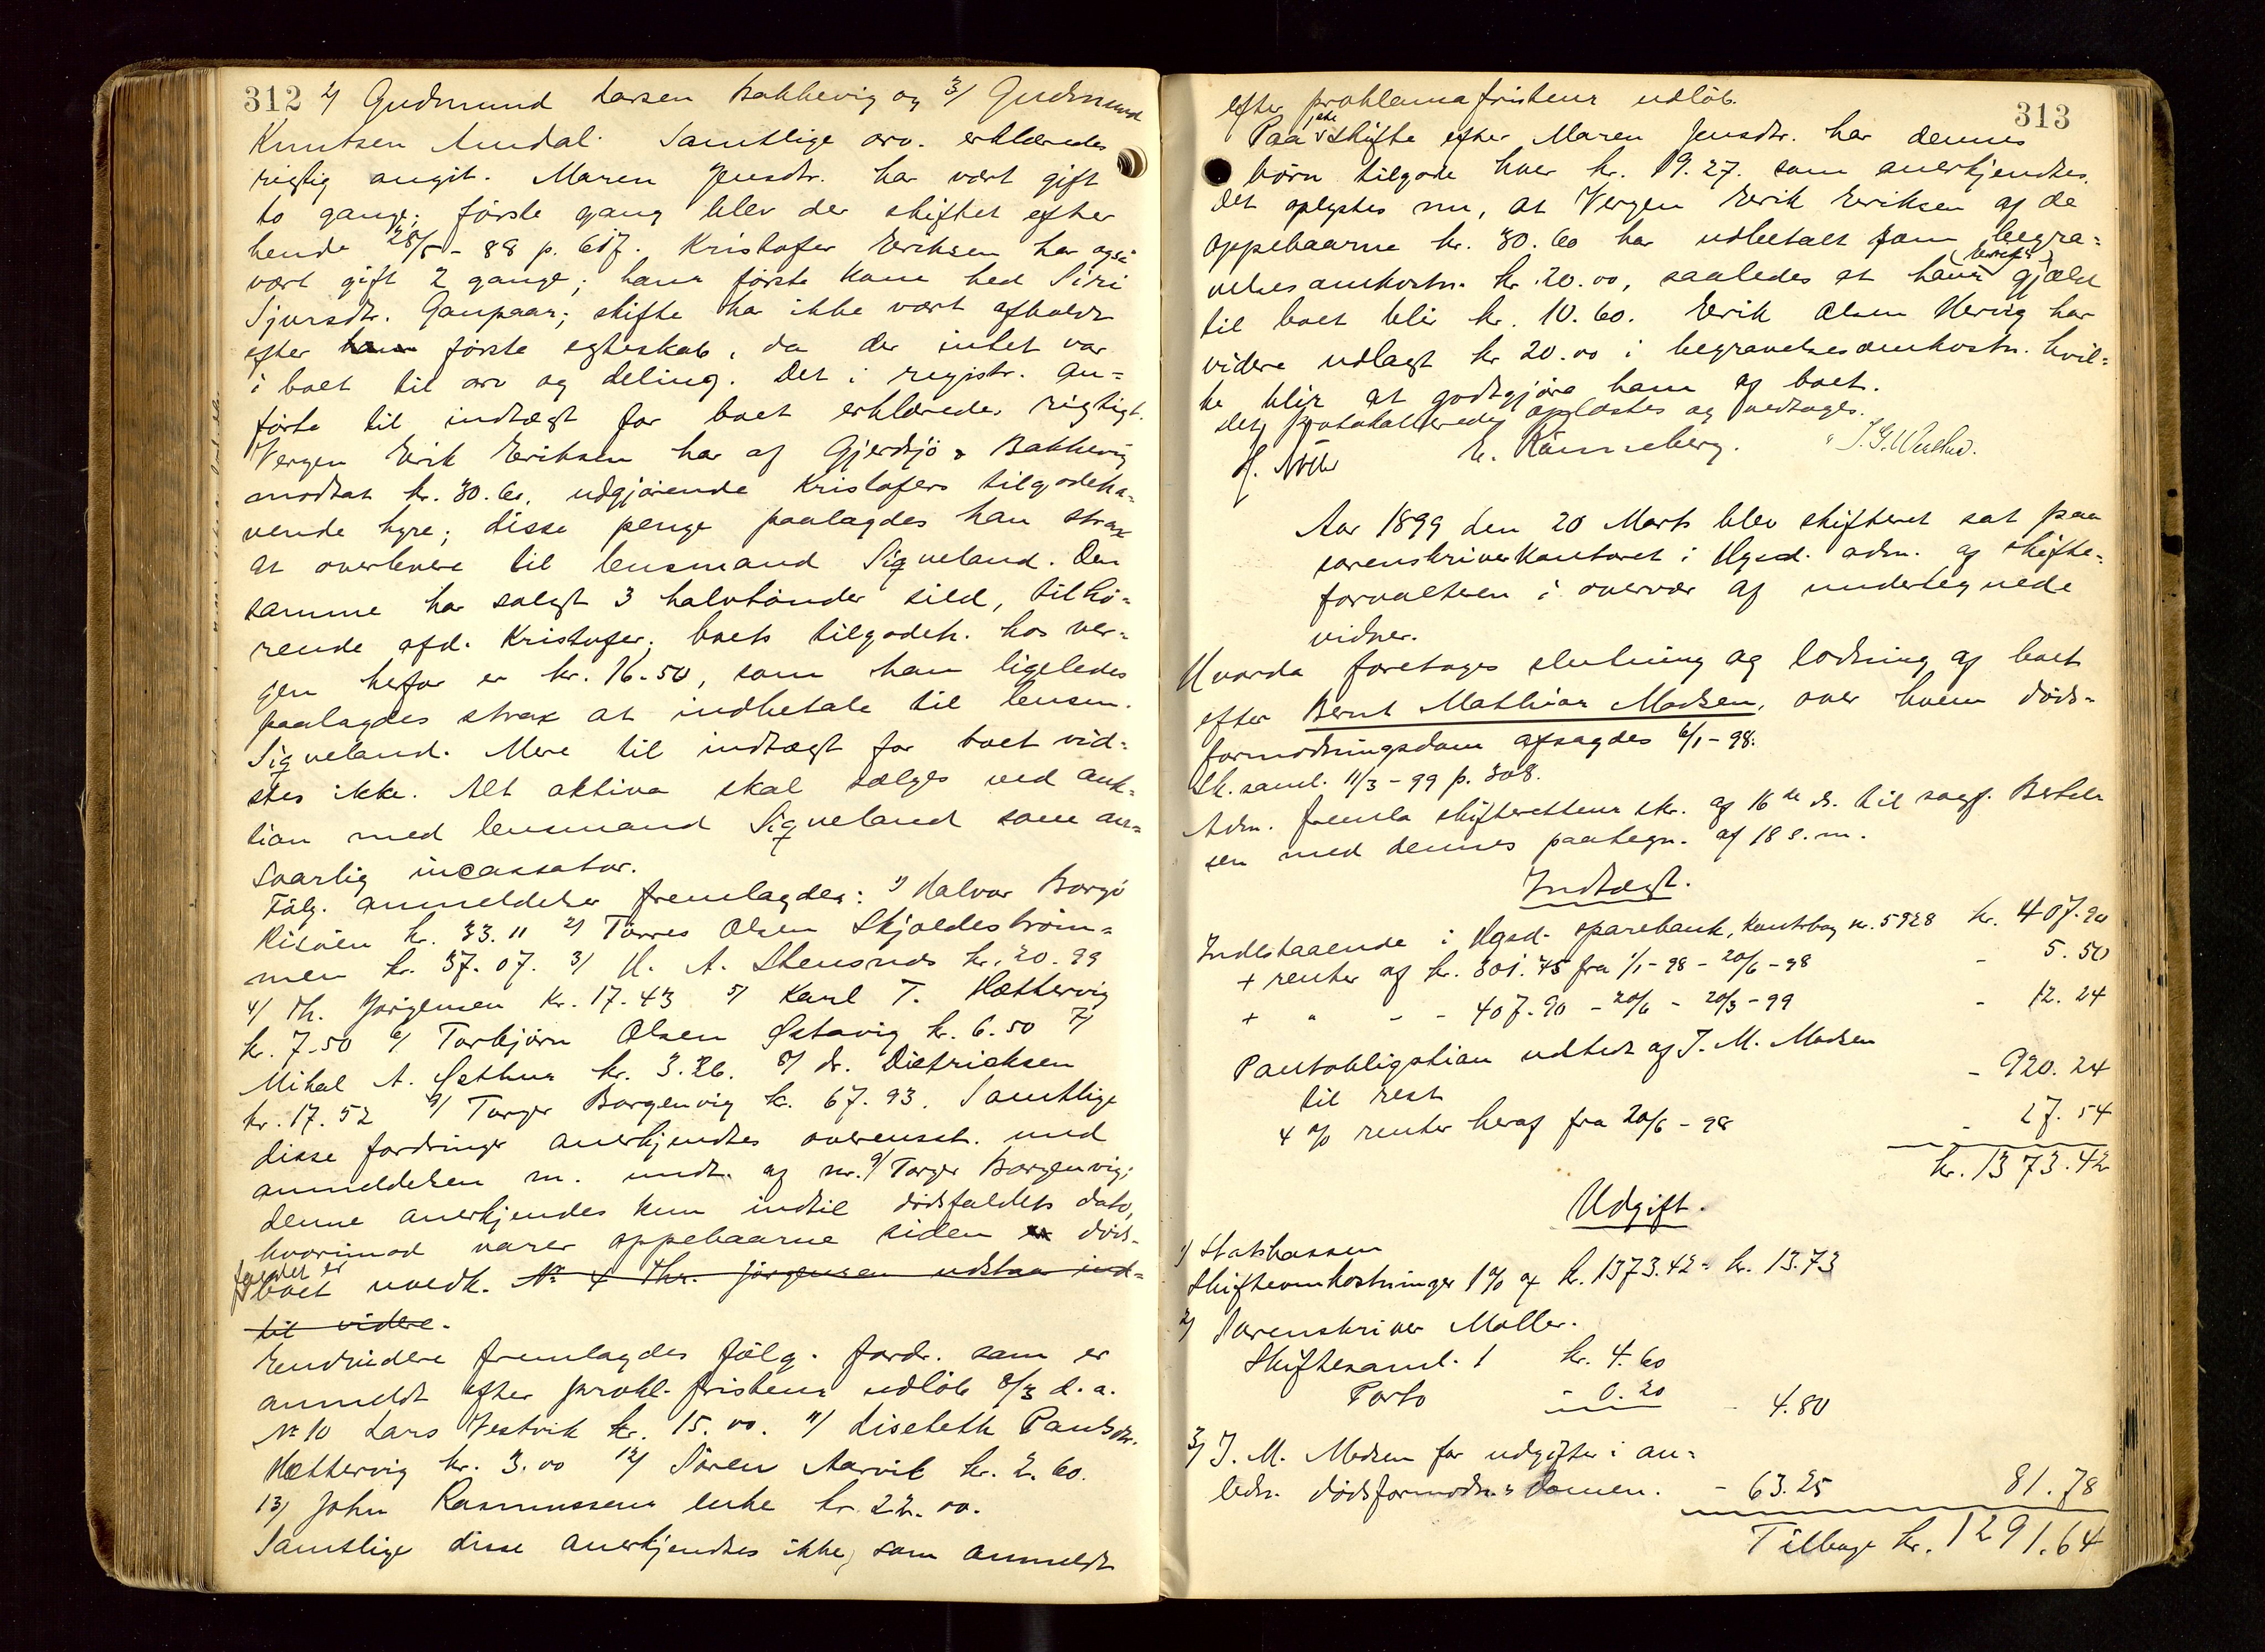 312 2/ Gudmund Larsen Bakkevig og 3/ Gudmund
Knutsen Amdal. Samtlige arv. erklæredes
rigtig angit. Maren Jensdtr. har vært gift
to gange; første gang blev der skiftet efter
hende 28/5 - 88 p. 617. Kristofer Eriksen har også
vært gift 2 gange; hans første kone hed Siri
Sjursdtr. Gaupaas; skifte har ikke vært afholdt
efter hans første egteskab, da der intet var
i boet til arv og deling. Det i registr. an=
førte til indtægt for boet erklæredes rigtigt.
Vergen Erik Eriksen har af Gjerdsjø & Bakkevig
modtat kr. 30.60, udgjørende Kristofers tilgodeha=
vende hyre; disse penge paalagdes han strax
at overlevere til lensmand Sigveland. Den
samme har solgt 3 halvtønder sild, tilhø=
rende afd. Kristofer; boets tilgodeh. hos ver=
gen herfor er kr. 16.50, som han ligeledes
paalagdes strax at indbetale til lensm.
Sigveland. Mere til indtægt for boet vid=
stes ikke. Alt aktiva skal sælges ved auk=
tion med lensmand Sigveland som an=
svarlig incassator.
Følg. anmeldelser fremlagdes: 1) Halvor Borgø
Risøen kr. 33.11 2) Tørres Olsen Skjoldestrøm=
men kr. 37.07. 3/ H. A. Stensnds kr. 20.99
4/ Th. Jørgensen Kr. 17.43 5/ Karl T. Hættervig
kr. 7.50 6/ Torbjørn Olsen Østavig kr. 6.50 7/
Mikal A. Østhus kr. 3.26. 8/ dr. Dietrichsen
kr. 17.52 9/ Torger Borgenvig kr. 67.93. Samtlige
disse fordringer anerkjendtes overensst. med
anmeldelsen m. undt. af nr. 9/ Torger Borgenvig;
denne anerkjendes kun indtil dødsfaldets dato,
hvorimod varer oppebaarne siden døds-
faldet er
boet uvedk. No 4 Thr. Jørgensen udstaa ind=
til videre.
Endvidere fremlagdes følg. fordr. som er
anmeldt efter prokl. fristens udløb 8/3 d.a.
No 10 Lars Vestvik kr. 15.00. 11/ Lisebeth Paulsdtr.
Hættervig kr. 3.00 12/ Søren Aarvik kr. 2.60.
13/ John Rasmussens enke kr. 22.00.
Samtlige disse anerkjendtes ikke, som anmeldt
313
efter proklamafristens udløb.
Paa skifte efter Maren Jensdtr. har dennes
børn tilgode hver kr. 19.27. som anerkjendtes.
Det oplystes nu, at Vergen Erik Eriksen af de
oppebaarne kr. 30.60 har udbetalt som begra=
velsesomkostn. kr. 20.00, saaledes at hans gjæld
til boet blir kr. 10.60. Erik Olsen Hervig har
videre udlagt kr 20.00 i begravelsesomkostn. hvil=
ke blir at godtgjøre ham af boet.
Det protokollerede oplæstes og vedtoges.
E. Rönneberg.
Aar 1899 den 20 Marts blev skifteret sat paa
sorenskriverkontoret i Hgsd. adm. af skifte=
forvalteren i overvær af undertegnede
vidner.
Hvorda foretoges slutning og lodning af boet
efter Bernt Mathias Madsen, over hvem døds=
formodningsdom afsagdes 6/1 - 98.
Sk. saml. 11/3 - 99 p. 308.
Adm. fremla skifterettens skr. af 16de ds. til sagf. Bertel=
sen med dennes paategn. af 18 s.m.
Indtægt.
Indestaaende i Hgsd. sparebank, Kontrbog nr. 5928 kr. 407.90
+ renter af kr. 301.45 fra 1/1 - 98 - 20/6 - 98 - 5.50
+ " - - 407.90 - 20/6 - 20/3 - 99 - 12.24
Pantobligation udstedt af J. M. Madsen
til rest - 920.24
4 % renter heraf fra 20/6 - 98 - 27.54
kr. 1373.42
Udgift.
1/ Statskassen
Skifteomkostninger 1% af kr. 1373.42 = kr. 13.73
2/ Sorenskriver Møller.
Skiftesaml. 1 kr. 4.60
Porto - 0.20 - 4.80
3/ J. M. Madsen for udgifter i an=
ledn. dødsformodn.s Domen. - 63.25 81.78
Tilbage kr. 1291.64